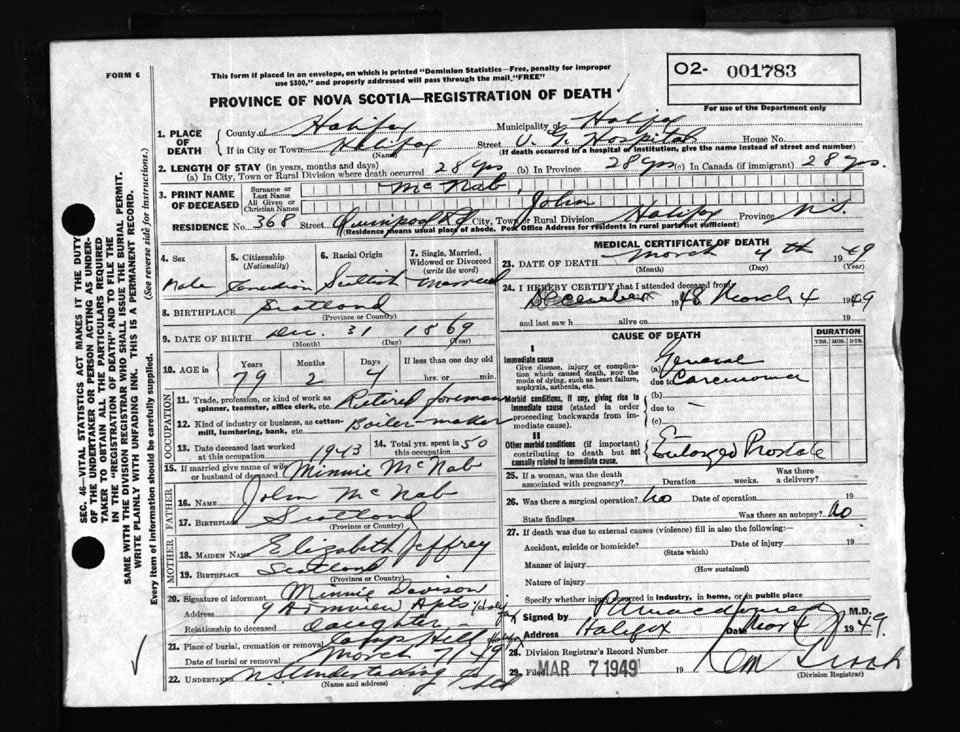 FORM 6
This form if placed in an envelope, on which is printed "Dominion Statistics—Free, penalty for improper
use $300," and properly addressed will pass through the mail, "FREE"
O2- 001783
For use of the Department only
PROVINCE OF NOVA SCOTIA—REGISTRATION OF DEATH
1. PLACE OF DEATH
County of Halifax Municipality of Halifax
If in City or Town Halifax Street V. G. Hospital House No.
(Name) (If death occurred in a hospital or institution, give the name instead of street and number)
2. LENGTH OF STAY (in years, months and days)
(a) In City, Town or Rural Division where death occurred 28 yrs (b) In Province 28 yrs (c) In Canada (if immigrant) 28 yrs.
3. PRINT NAME OF DECEASED
Surname or Last Name McNab
All Given or Christian Names John
RESIDENCE No. 368 Street Quinpool Rd City, Town or Rural Division Halifax Province N.S.
(Residence means usual place of abode. Post Office Address for residents in rural parts not sufficient)
4. Sex
Male
5. Citizenship
(Nationality)
Canadian
6. Racial Origin
Scottish
7. Single, Married, Widowed or Divorced
(write the word)
Married
8. BIRTHPLACE Scotland
(Province or Country)
9. DATE OF BIRTH Dec. 31 1869
(Month) (Day) (Year)
10. AGE in Years Months Days If less than one day old
79 2 4 hrs. or min.
OCCUPATION
11. Trade, profession, or kind of work as
spinner, teamster, office clerk, etc. Retired foreman
12. Kind of industry or business, as cotton-
mill, lumbering, bank, etc. Boiler-maker
13. Date deceased last worked
at this occupation 1943
14. Total yrs. spent in
this occupation 50
15. If married give name of wife
or husband of deceased Minnie McNab
FATHER
16. NAME John McNab
17. BIRTHPLACE Scotland
(Province or Country)
MOTHER
18. MAIDEN NAME Elizabeth Jeffrey
19. BIRTHPLACE Scotland
(Province or Country)
20. Signature of informant Minnie Davison
Address 9 Armview Apts Halifax
Relationship to deceased daughter
21. Place of burial, cremation or removal Camp Hill Halifax
Date of burial or removal March 7/49
22. UNDERTAKER N.S. Undertaking Co Ltd
(Name and address)
MEDICAL CERTIFICATE OF DEATH
23. DATE OF DEATH March 4th 1949
(Month) (Day) (Year)
24. I HEREBY CERTIFY that I attended deceased from
December 1948 March 4 1949
and last saw h alive on
CAUSE OF DEATH
DURATION
YRS. MOS. DYS.
I
Immediate cause
Give disease, injury or complica-
tion which caused death, NOT the
mode of dying, such as heart failure,
asphyxia, asthenia, etc.
(a) General
due to Carcinoma
Morbid conditions, if any, giving rise to
immediate cause (stated in order
proceeding backwards from im-
mediate cause).
(b)
due to —
(c)
II
Other morbid conditions (if important)
contributing to death but not
causally related to immediate cause.
Enlarged Prostate
25. If a woman, was the death
associated with pregnancy? Duration weeks. Was there
a delivery?
26. Was there a surgical operation? no Date of operation 19
State findings Was there an autopsy? no
27. If death was due to external causes (violence) fill in also the following:—
Accident, suicide or homicide? Date of injury 19
(State which)
Manner of injury
(How sustained)
Nature of injury
Specify whether injury occurred in industry, in home, or in public place
Signed by M.D.
Address Halifax Date Mar 4 1949.
28. Division Registrar's Record Number
29. Filed MAR 7 1949 19
(Division Registrar)
SEC. 46—VITAL STATISTICS ACT MAKES IT THE DUTY
OF THE UNDERTAKER OR PERSON ACTING AS UNDER-
TAKER TO OBTAIN ALL THE PARTICULARS REQUIRED
IN THE "REGISTRATION OF DEATH" AND TO FILE THE
SAME WITH THE DIVISION REGISTRAR WHO SHALL ISSUE THE BURIAL PERMIT.
WRITE PLAINLY WITH UNFADING INK. THIS IS A PERMANENT RECORD.
Every item of information should be carefully supplied. (See reverse side for instructions.)